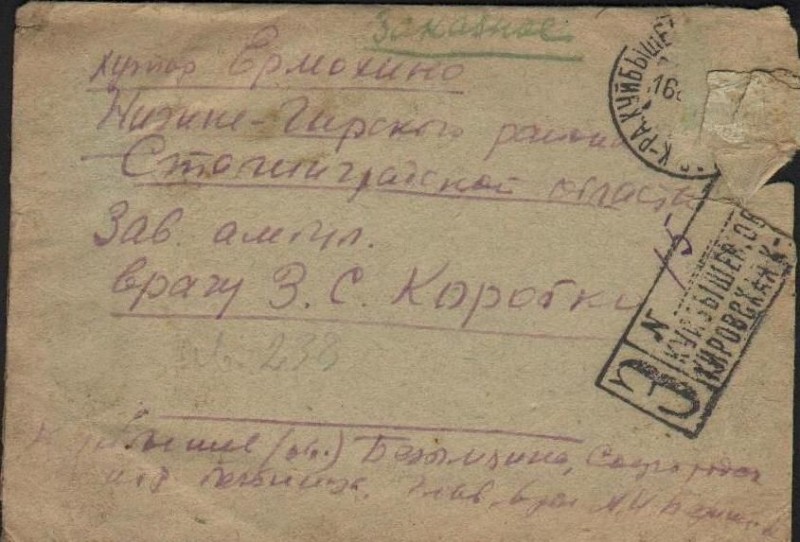 Заказное
хутор Ермохино
Нижне-Чирского района
Сталинградской области
Зав. амбул.
врачу З. С. Коротк
№ 238
К-РА КУЙБЫШЕ
16
З
N 15
КУЙБЫШЕВ. ОБ
КИРОВСКАЯ К-
(обл.) Безымянка, Соцгород
больница. Глав. врач